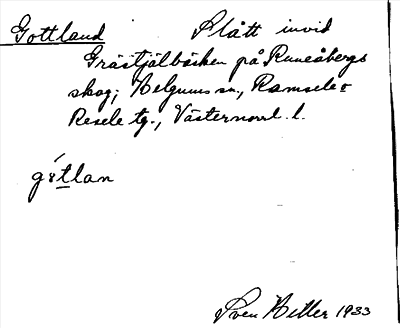 Gottland Slått invid
Gråstjälbäcken på Runsåbergs
skog; Helgums sn., Ramsele o
Resele tg., Västernorrl. l.
götlan
Sven Heller 1933